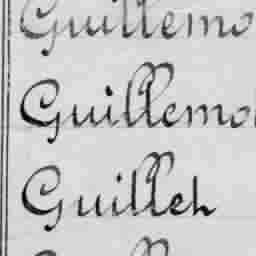 Guillemo
Guillemo
Guilleh